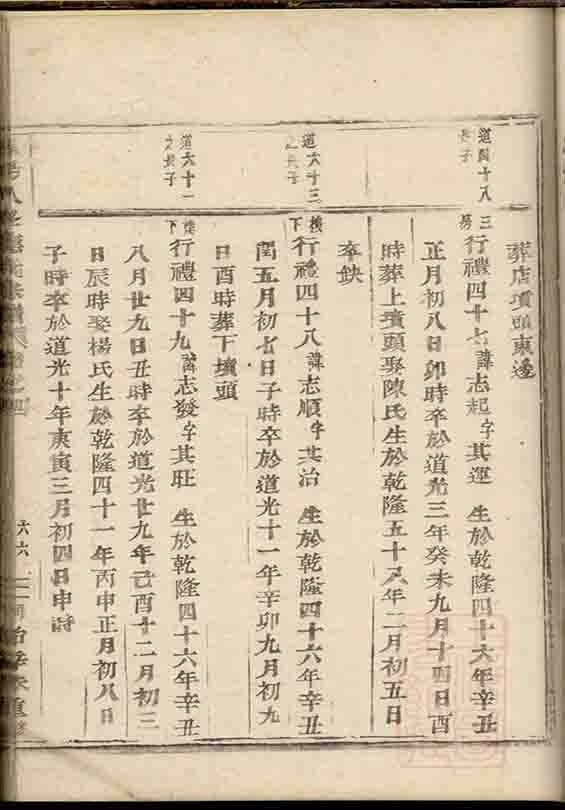 葬店墳頭東邊
道四十八
長子
三房
行禮四十七諱志起字其運 生於乾隆四十六年辛丑
正月初八日卯時卒於道光三年癸未九月十四日酉
時葬上墳頭娶陳氏生於乾隆五十八年二月初五日
卒缺
道六十三
之長子
樓下
行禮四十八諱志順字其治 生於乾隆四十六年辛丑
閏五月初七日子時卒於道光十一年辛卯九月初九
日酉時葬下墳頭
道六十一
之長子
樓下
行禮四十九諱志發字其旺 生於乾隆四十六年辛丑
八月廿九日丑時卒於道光廿九年己酉十二月初三
日辰時娶楊氏生於乾隆四十一年丙申正月初八日
子時卒於道光十年庚寅三月初四日申時
六六